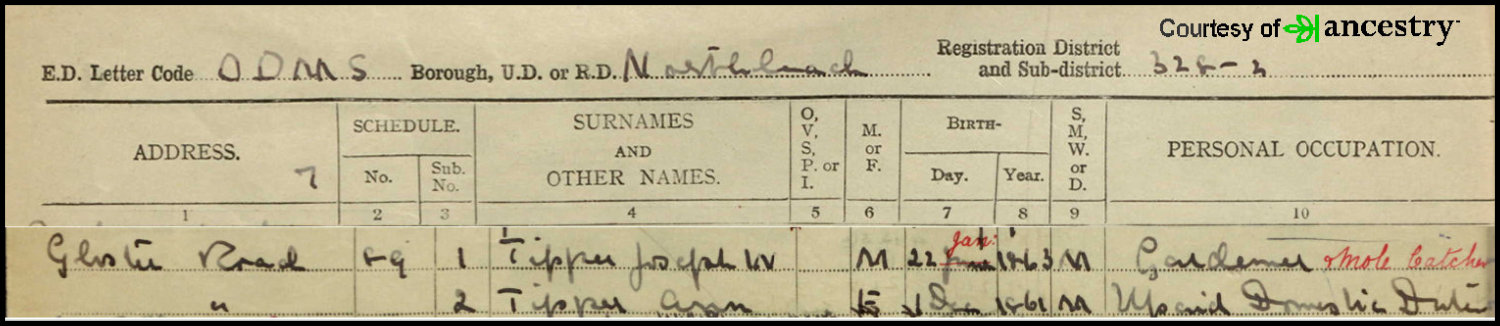 Courtesy of ancestry
E.D. Letter Code O D M S Borough, U.D. or R.D. Northleach Registration District and Sub-district 328-2
ADDRESS. 7
SCHEDULE.
No.
Sub. No.
SURNAMES
AND
OTHER NAMES.
O,
V,
S,
P. or
I.
M.
or
F.
BIRTH-
Day.
Year.
S,
M,
W.
or
D.
PERSONAL OCCUPATION.
1 2 3 4 5 6 7 8 9 10
Gloster Road 89 1 Tipper Joseph W M 22 Jan: 1863 M Gardener & Mole Catcher
" 2 Tipper Ann F 1 Dec 1861 M Unpaid Domestic Duties